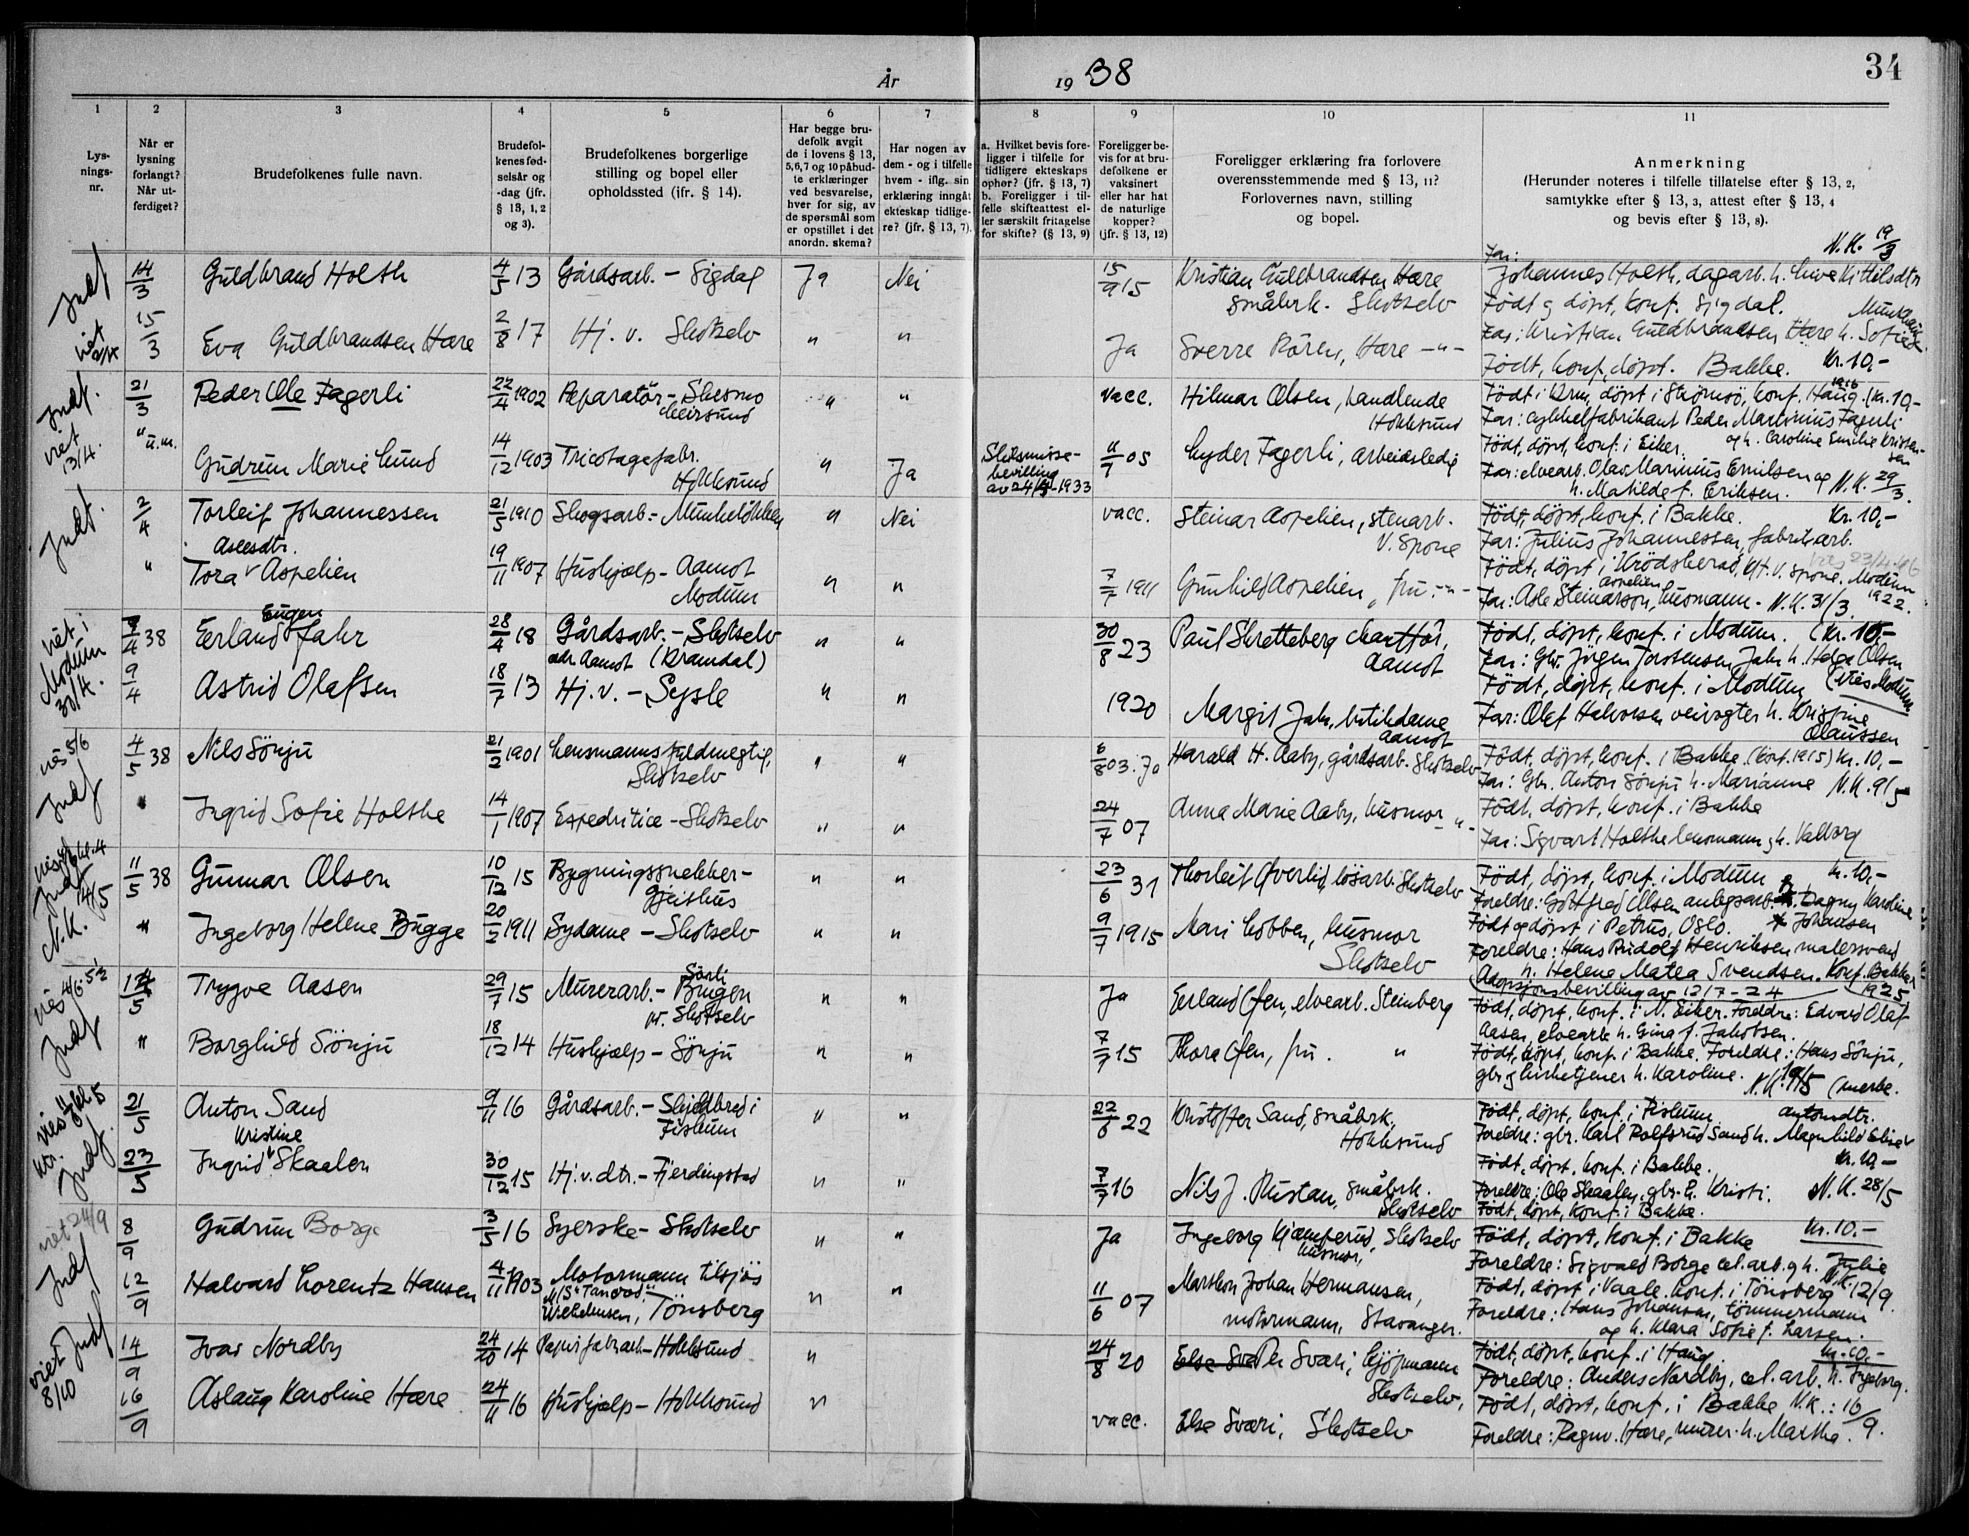 År 1938
34
1 2 3 4 5 6 7 8 9 10 11
Lys-
nings-
nr.
Når er
lysning
forlangt?
Når ut-
ferdiget?
Brudefolkenes fulle navn.
Brudefol-
kenes fød-
selsår og
-dag (jfr.
§ 13, 1, 2
og 3).
Brudefolkenes borgerlige
stilling og bopel eller
opholdssted (ifr. § 14).
Har begge bru-
defolk avgit
de i lovens § 13,
5,6,7 og 10 påbud-
te erklæringer
ved besvarelse,
hver for sig, av
de spørsmål som
er opstillet i det
anordn. skema?
Har nogen av
dem - og i tilfelle
hvem - iflg. sin
erklæring inngåt
ekteskap tidlige-
re? (jfr. § 13, 7).
a. Hvilket bevis fore-
ligger i tilfelle for
tidligere ekteskaps
ophør? (jfr. § 13, 7)
b. Foreligger i til-
felle skifteattest el-
ler særskilt fritagelse
for skifte? (§ 13, 9)
Foreligger be-
vis for at bru-
defolkene er
vaksinert
eller har hat
de naturlige
kopper?
(jfr. § 13, 12)
Foreligger erklæring fra forlovere
overensstemmende med § 13, 11?
Forlovernes navn, stilling
og bopel.
Anmerkning
(Herunder noteres i tilfelle tillatelse efter § 13, 2,
samtykke efter § 13, 3, attest efter § 13, 4
og bevis efter § 13, 8).
N.K. 19/3
Far:
14/3 Guldbrand Holth 4/5 13 Gårdsarb. - Sigdal Ja Nei 15/9 15 Kristian Guldbrandsen Hære
småbrk. Skotselv
Johannes Holth, dagarb. h.
Født og døpt, konf. Sigdal.
15/3 Eva Guldbrandsen Hære 2/8 17 Hj. v. Skotselv " " Ja Sverre Hære -"-
Far: Kristian Guldbrandsen Hære h. Sofie
Født, konf., døpt. Bakke. Kr. 10,-
Indf. viet 13/4.
21/3 Peder Ole Fagerli 22/4 1902 Reparatør - " " vacc. Hilmar Olsen, handlende
Hokksund
Født i Drm, døpt i Strømsø, konf. Haug. 1916 (Kr. 10,-
Far: cykkelfabrikant Peder Martinius Fagerli
og h. Caroline Emilie Kristen-
sen
" u.m. Gudrun Marie Lund 14/12 1903 Tricotagefabr.
Hokksund " Ja Skilsmisse-
bevilling
1933 05 Lyder Fagerli, arbeidsledig
Født, døpt, konf. i Eiker.
Far: elvearb. Olav Marinius Emilsen og
h. Matilde f. Eriksen. N.K. 29/3.
Indf.
2/4 Torleif Johannessen 21/5 1910 Skogsarb. - " Nei vacc. Steinar Aspelien, stenarb.
V. Spone
Født, døpt, konf. i Bakke. Kr. 10,-
Far: Julius Johannessen, fabrikarb.
" Tora Aslesdtr. Aspelien 19/11 1907 Hushjælp - Aamot
Modum " " 7/7 1911 Gunhild Aspelien, fru. -"-
Født, døpt i Krødsherad, V. Spone. Modum 1922.
Far: Asle Steinarson Aspelien, husmann - N.K. 31/3.
viet i
Modum
30/4.
9/4 38 Erland Eugen Jahr 28/4 18 Gårdsarb. - Skotselv
adr Aamot " " 30/8 23 Paul Skretteberg
Aamot
Født, døpt, konf. i Modum. (Kr. 10,-
Far: Gbr. Jørgen Torstensen Jahr h. Helga Olsen
9/4 Astrid Olafsen 18/7 13 Hj. v. - Sysle " " 1920 Margit Jahr, butikdame
Aamot
Født, døpt, konf. i Modum (viet Modum
Far: Olaf Halvorsen veivogter h. Kristine
Olaussen
viet 5/6
Indf
4/5 38 Nils Sönju 21/2 1901 Lensmannsfuldmegtig,
Skotselv " " 6/8 03. Ja Harald H. Aaby, gårdsarb. Skotselv
Født, døpt, konf. i Bakke. (Konf. 1915) Kr. 10,-
Far: Gbr. Anton Sönju h. Marianne N.K. 9/5
" Ingrid Sofie Holthe 14/1 1907 Expeditrice - Skotselv " " 24/7 07 Anna Marie Aaby, husmor -"-
Født, døpt, konf. i Bakke
Far: Sigvart Holthe lensmann, h. Valborg
N.K. 14/5
11/5 38 Gunnar Olsen 10/12 15 Bygningssnekker -
Geithus " " 23/6 31 Thorleif Øverlid, løsarb. Skotselv
Født, døpt, konf. i Modum Kr. 10,-
Foreldre: Gottfred Olsen anlegsarb. h. Dagny Karoline
Johansen
" Ingeborg Helene Bugge 20/2 1911 Sydame - Skotselv " " 9/7 1915 Mari Lobben, husmor
Skotselv
Født og døpt, i Petrus, Oslo.
Foreldre: Hans Rudolf Henriksen malersvend
h. Helene Matea Svendsen. Konf. Bakke
1925
Adopsjonsbevilling av 12/7-24
Indf
5 Trygve Aasen 29/7 15 Murerarb. -
pr. Skotselv " " Ja Erland Ofen, elvearb. Steinberg
Født, døpt, konf. i N. Eiker. Foreldre: Edvard Olaf
Aasen, elvearb. h. Gina f. Jakobsen.
" Borghild Sönju 18/12 14 Hushjælp - Sönju " " 7/7 15 Thora Ofen, fru. "
Født, døpt, konf. i Bakke. Foreldre: Hans Sönju,
gbr. og kirketjener h. Karoline. N.K. 19/5
Indf
21/5 Anton Sand 9/11 16 Gårdsarb. - Skjeldbred i
Fiskum " " 22/6 22 Kristoffer Sand, småbrk.
Hokksund
Født, døpt, konf. i Fiskum Antondtr.
Foreldre: gbr. Karl Rolfsrud Sand h. Magnhild Elise
23/5 Ingrid Kristine Skaalen 30/12 15 Hj. v. dtr. - Fjerdingstad " " 7/7 16 Nils J. Rustan, småbrk.
Skotselv
Født, døpt, konf. i Bakke. Kr. 10,-
Foreldre: Ole Skaalen, gbr. h. Kristi. N.K. 28/5
Født, døpt, konf. i Bakke.
viet 24/9
Indf
8/9 Gudrun Borge 3/5 16 Syerske - Skotselv " " Ja Ingeborg Kjæmperud, Skotselv
husmor,
Født, døpt, konf. i Bakke Kr. 10.-
Foreldre: Sigvald Borge cel. arb. og h. Julie
12/9 Halvard Lorentz Hansen 4/11 1903 Motormann tilsjøs
M/S "Tancred"
Wilhelmsen, Tönsberg " " 11/6 07 Marthon Johan Hermansen,
motormann, Stavanger.
Født, døpt i Vaale. konf. i Tönsberg N.K. 12/9.
Foreldre: Hans Johansen, tömmermann
og h. Klara Sofie f. Larsen.
viet 8/10 Indf
14/9 Ivar Nordby 24/10 14 Papirfabrarb - Hokksund " 24/8 20 Per Sværi, kjøpmann
Skotselv,
Født, døpt, konf. i Haug. Kr. 10.-
Foreldre: Anders Nordby, cel. arb. h. Ingeborg.
16/9 Aslaug Karoline Hære 24/11 16 Hushjælp - Hokksund " vacc. Else Sværi, Skotselv
Født, døpt, konf. i Bakke N.K.: 16/9.
Foreldre: Ragnv. Hære, murer h. Martha.